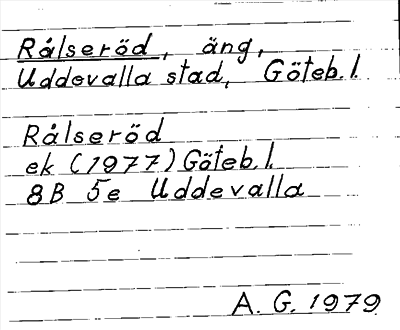 Rålseröd, äng,
Uddevalla stad, Göteb. l.
Rålseröd
ek (1977) Göteb. l.
8B 5e Uddevalla
A. G. 1979